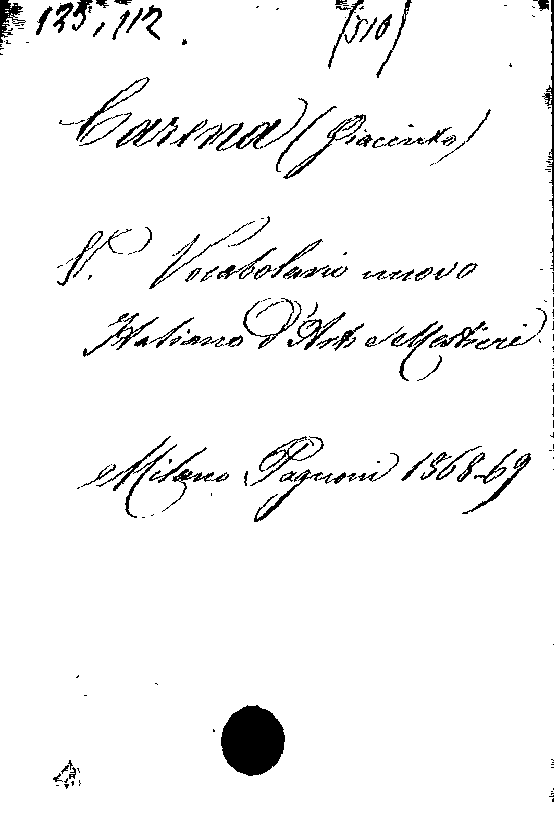 125,112. (510)
Carena (Giacinto)
V. Vocabolario nuovo
Italiano d'Arti e Mestieri
Milano Pagnoni 1868-69